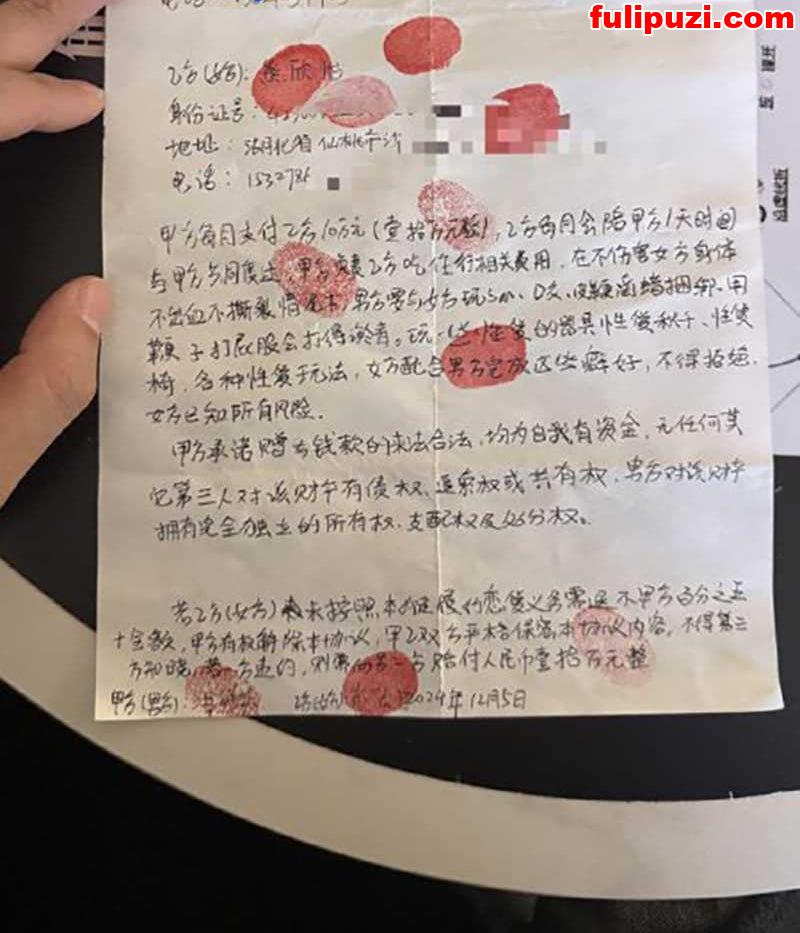 fulipuzi.com
乙方(女方):
身份证号:
地址: 湖北省仙桃市
电话: 1532786
甲方每月支付乙方10万元(壹拾万元整),乙方每月会陪甲方1天时间
与甲方共同度过,甲方负责乙方吃住行相关费用,在不伤害女方身体
不出血不撕裂情况下,男方要与女方玩sm、口交、皮鞭滴蜡捆绑,用
鞭子打屁股会打得淤青。玩一些性爱的器具性爱秋千、性爱
椅,各种性爱玩法,女方配合男方完成这些癖好,不得拒绝,
女方已知所有风险。
甲方承诺赠与钱款的来法合法,均为自我有资金,无任何其
它第三人对该财产有债权、追索权或共有权,男方对该财产
拥有完全独立的所有权、支配权及处分权。
若乙方(女方)未按照本 履行恋爱义务需退 甲方百分之五
十金额,甲方有权解除本协议,甲乙双方严格保密本协议内容,不得第三
方知晓,若一方违约,则需向另一方赔付人民币壹拾万元整
甲方(男方): 乙方(女方) 2024年12月5日